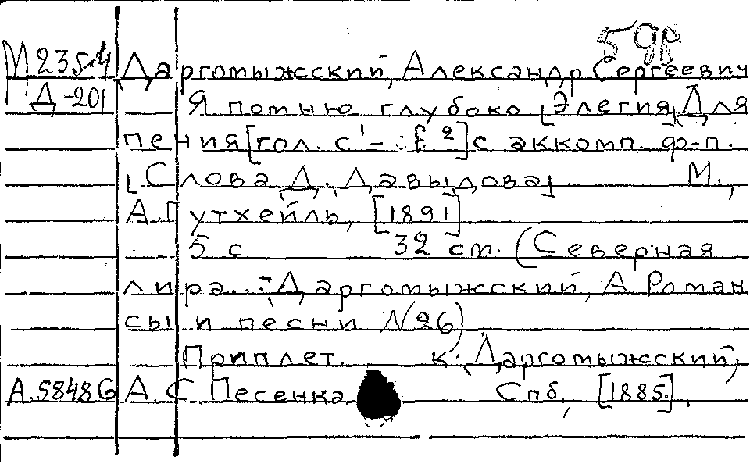 598
М 235.4 Даргомыжский, Александр Сергеевич
Д-201 Я помню глубоко [Элегия] Для
пения [гол. с¹ - f²] с аккомп. ф-п.
[Слова Д. Давыдова] М.,
А. Гутхейль, [1891]
5 с 32 см. (Северная
лира... : Даргомыжский, А. Роман
сы и песни №26)
Приплет. к: Даргомыжский,
А.58486 А. С Песенка Спб, [1885].